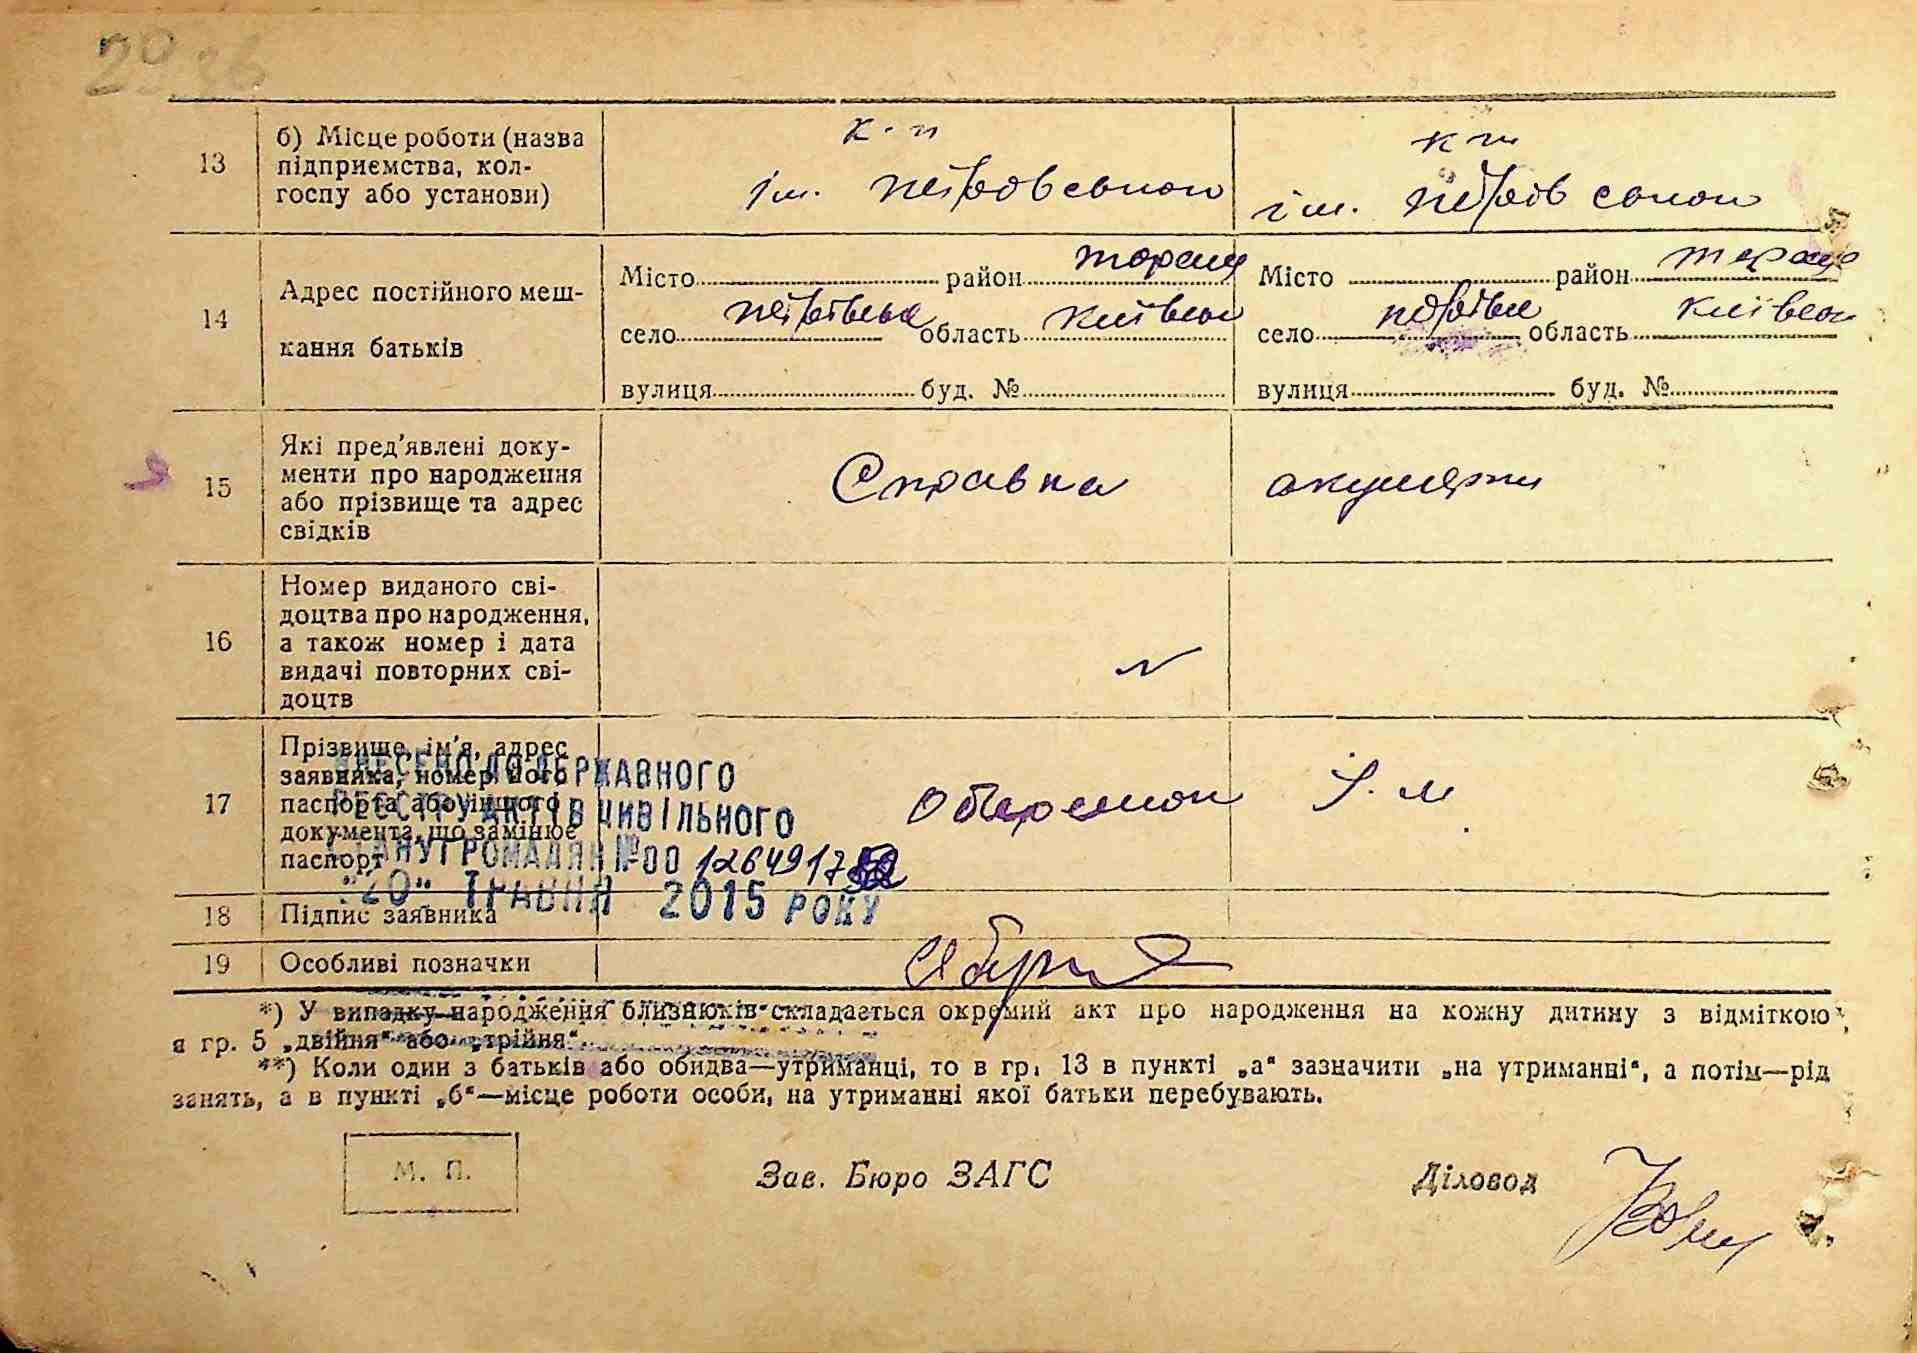 13
б) Місце роботи (назва
підприємства, кол-
госпу або установи)
к-п
ім.
ім.
14
Адрес постійного меш-
кання батьків
Місто район
село область
вулиця буд. №
Місто район
село область
вулиця буд. №
15
Які пред'явлені доку-
менти про народження
або прізвище та адрес
свідків
Справка акушерки
16
Номер виданого сві-
доцтва про народження,
а також номер і дата
видачі повторних сві-
доцтв
17
Прізвище, ім'я, адрес
заявника, номер його
паспорта або іншого
документа, що замінює
паспорт
ВНЕСЕНО ДО ДЕРЖАВНОГО
РЕЄСТРУ АКТІВ ЦИВІЛЬНОГО
СТАНУ ГРОМАДЯН №00
"20" ТРАВНЯ 2015 РОКУ
18
Підпис заявника
19
Особливі позначки
*) У випадку народження близнюків складається окремий акт про народження на кожну дитину з відміткою
в гр. 5 „двійня“ або „трійня“.
**) Коли один з батьків або обидва—утриманці, то в гр. 13 в пункті „а“ зазначити „на утриманні“, а потім—рід
занять, а в пункті „б“—місце роботи особи, на утриманні якої батьки перебувають.
М. П.
Зав. Бюро ЗАГС
Діловод